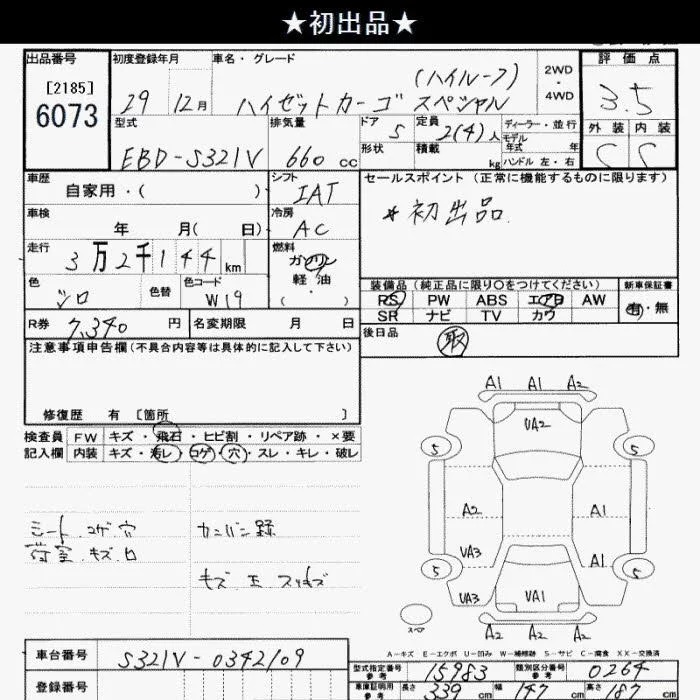 ★初出品★
出品番号
[2185]
6073
初度登録年月
29 12月
車名・グレード
(ハイルーフ)
ハイゼットカーゴ スペシャル
2WD
・
4WD
評価点
3.5
型式
EBD-S321V
排気量
660 cc
ドア
5
定員
2(4)人
形状
積載
kg
ディーラー・並行
モデル
年式 年
ハンドル 左・右
外装 内装
C C
車歴
自家用・( )
シフト
IAT
セールスポイント(正常に機能するものに限ります)
*初出品.
車検
年 月( 日)
冷房
AC
走行
3万2千144km
燃料
ガソリン
・
軽油
・
( )
色
シロ
色替
色コード
W19
装備品(純正品に限り○をつけてください)
新車保証書
RS PW ABS エアB AW
有・無
SR ナビ TV カワ
R券
7,340 円
名変期限 月 日
後日品
取
注意事項申告欄(不具合内容等は具体的に記入して下さい)
修復歴 有 〔箇所 〕
検査員
記入欄
FW キズ・飛石・ヒビ割・リペア跡・×要
内装 キズ・汚レ・コゲ・穴・スレ・キレ・破レ
シート コゲ 穴
荷室 キズ 凹
カンバン跡
キズ 凹 スリキズ
A1 A1 A2
UA2
5 5
A2 A1
UA3 A1
5 5
UA3 UA1
スペア
A2 A2 A2
A-キズ E-エクボ U-凹み W-補修跡 S-サビ C-腐食 XX-交換済
車台番号
S321V-0342109
登録番号
型式指定番号
参考
15983
類別区分番号
参考
0264
車庫証明用
参考
長さ
339 cm
幅
147 cm
高さ
187 cm